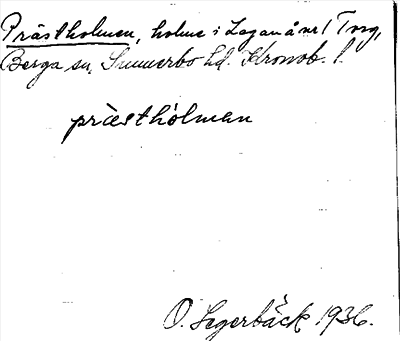 Prästholmen, holme i Lagan å nr 1 Torg,
Berga sn, Sunnerbo hd. Kronob. l.
præsthòlman
O. Segerbäck 1936.